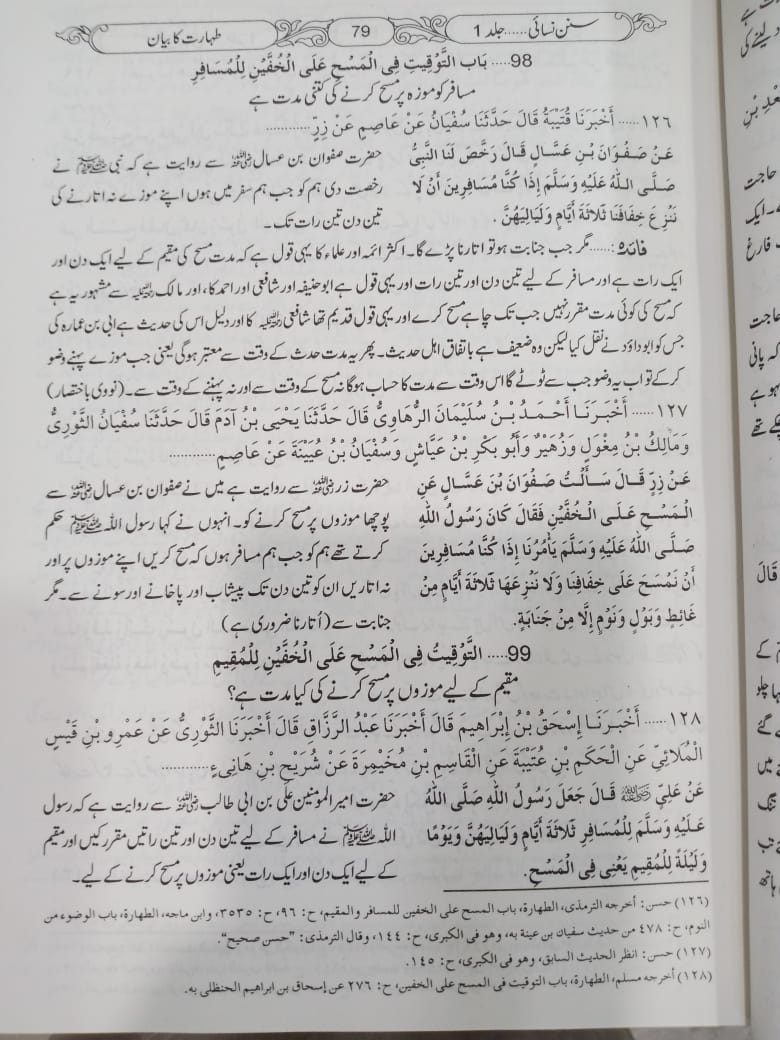 سنن نسائی ...... جلد 1
79
طہارت کا بیان
98..... بَاب التَّوْقِيتِ فِي الْمَسْحِ عَلَى الْخُفَّيْنِ لِلْمُسَافِرِ
مسافر کو موزہ پر مسح کرنے کی کتنی مدت ہے
١٢٦...... أَخْبَرَنَا قُتَيْبَةُ قَالَ حَدَّثَنَا سُفْيَانُ عَنْ عَاصِمٍ عَنْ زِرٍّ............
عَنْ صَفْوَانَ بْنِ عَسَّالٍ قَالَ رَخَّصَ لَنَا النَّبِيُّ
صَلَّى اللهُ عَلَيْهِ وَسَلَّمَ إِذَا كُنَّا مُسَافِرِينَ أَنْ لَا
نَنْزِعَ خِفَافَنَا ثَلَاثَةَ أَيَّامٍ وَلَيَالِيَهُنَّ .
حضرت صفوان بن عسال رضی اللہ عنہ سے روایت ہے کہ نبی ﷺ نے
رخصت دی ہم کو جب ہم سفر میں ہوں اپنے موزے نہ اتارنے کی
تین دن تین رات تک۔
فائدہ:...... مگر جب جنابت ہو تو اتارنا پڑے گا۔ اکثر ائمہ اور علماء کا یہی قول ہے کہ مدت مسح کی مقیم کے لیے ایک دن اور
ایک رات ہے اور مسافر کے لیے تین دن اور تین رات اور یہی قول ہے ابوحنیفہ اور شافعی اور احمد کا، اور مالک رحمہ اللہ سے مشہور یہ ہے
کہ مسح کی کوئی مدت مقرر نہیں جب تک چاہے مسح کرے اور یہی قول قدیم تھا شافعی رحمہ اللہ کا اور دلیل اس کی حدیث ہے ابی بن عمارہ کی
جس کو ابوداؤد نے نقل کیا لیکن وہ ضعیف ہے باتفاق اہل حدیث۔ پھر یہ مدت حدث کے وقت سے معتبر ہوگی یعنی جب موزے پہنے وضو
کرکے تو اب یہ وضو جب سے ٹوٹے گا اس وقت سے مدت کا حساب ہوگا نہ مسح کے وقت سے اور نہ پہننے کے وقت سے۔ (نووی باختصار)
١٢٧...... أَخْبَرَنَا أَحْمَدُ بْنُ سُلَيْمَانَ الرُّهَاوِيُّ قَالَ حَدَّثَنَا يَحْيَى بْنُ آدَمَ قَالَ حَدَّثَنَا سُفْيَانُ الثَّوْرِيُّ
وَمَالِكُ بْنُ مِغْوَلٍ وَزُهَيْرٌ وَأَبُو بَكْرِ بْنُ عَيَّاشٍ وَسُفْيَانُ بْنُ عُيَيْنَةَ عَنْ عَاصِمٍ............
عَنْ زِرٍّ قَالَ سَأَلْتُ صَفْوَانَ بْنَ عَسَّالٍ عَنِ
الْمَسْحِ عَلَى الْخُفَّيْنِ فَقَالَ كَانَ رَسُولُ اللهِ
صَلَّى اللهُ عَلَيْهِ وَسَلَّمَ يَأْمُرُنَا إِذَا كُنَّا مُسَافِرِينَ
أَنْ نَمْسَحَ عَلَى خِفَافِنَا وَلَا نَنْزِعَهَا ثَلَاثَةَ أَيَّامٍ مِنْ
غَائِطٍ وَبَوْلٍ وَنَوْمٍ إِلَّا مِنْ جَنَابَةٍ.
حضرت زر رضی اللہ عنہ سے روایت ہے میں نے صفوان بن عسال رضی اللہ عنہ سے
پوچھا موزوں پر مسح کرنے کو۔ انہوں نے کہا رسول اللہ ﷺ حکم
کرتے تھے ہم کو جب ہم مسافر ہوں کہ مسح کریں اپنے موزوں پر اور
نہ اتاریں ان کو تین دن تک پیشاب اور پاخانے اور سونے سے۔ مگر
جنابت سے (اُتارنا ضروری ہے)
99..... التَّوْقِيتُ فِي الْمَسْحِ عَلَى الْخُفَّيْنِ لِلْمُقِيمِ
مقیم کے لیے موزوں پر مسح کرنے کی کیا مدت ہے؟
١٢٨...... أَخْبَرَنَا إِسْحَقُ بْنُ إِبْرَاهِيمَ قَالَ أَخْبَرَنَا عَبْدُ الرَّزَّاقِ قَالَ أَخْبَرَنَا الثَّوْرِيُّ عَنْ عَمْرِو بْنِ قَيْسٍ
الْمُلَائِيِّ عَنِ الْحَكَمِ بْنِ عُتَيْبَةَ عَنِ الْقَاسِمِ بْنِ مُخَيْمِرَةَ عَنْ شُرَيْحِ بْنِ هَانِىءٍ............
عَنْ عَلِيٍّ رضی اللہ عنہ قَالَ جَعَلَ رَسُولُ اللهِ صَلَّى اللهُ
عَلَيْهِ وَسَلَّمَ لِلْمُسَافِرِ ثَلَاثَةَ أَيَّامٍ وَلَيَالِيَهُنَّ وَيَوْمًا
وَلَيْلَةً لِلْمُقِيمِ يَعْنِي فِي الْمَسْحِ.
حضرت امیرالمومنین علی بن ابی طالب رضی اللہ عنہ سے روایت ہے کہ رسول
اللہ ﷺ نے مسافر کے لیے تین دن اور تین راتیں مقرر کیں اور مقیم
کے لیے ایک دن اور ایک رات یعنی موزوں پر مسح کرنے کے لیے۔
(١٢٦) حسن: أخرجه الترمذى، الطهارة، باب المسح على الخفين للمسافر والمقيم، ح: ٩٦، ح: ٣٥٣٥، وابن ماجه، الطهارة، باب الوضوء من
النوم، ح: ٤٧٨ من حديث سفيان بن عينة به، وهو فى الكبرى، ح: ١٤٤، وقال الترمذى: "حسن صحيح".
(١٢٧) حسن: انظر الحديث السابق، وهو فى الكبرى، ح: ١٤٥.
(١٢٨) أخرجه مسلم، الطهارة، باب التوقيت فى المسح على الخفين، ح: ٢٧٦ عن إسحاق بن ابراهيم الحنظلى به.